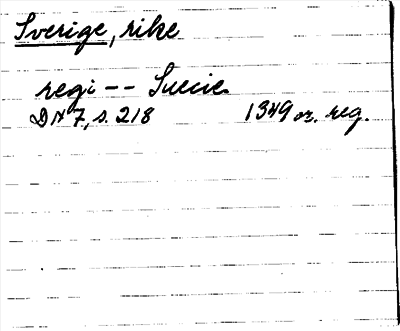 Sverige, rike
regi -- Suecie
DN 7, s. 218 1349 or. reg.